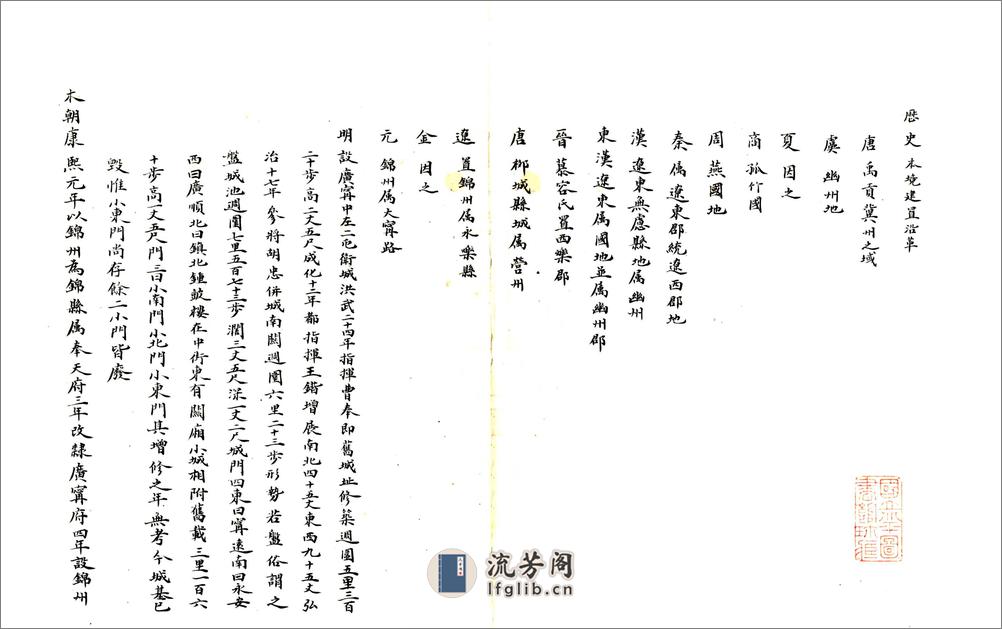 歷史 本境建置沿革
唐 禹貢冀州之域
虞 幽州地
夏 因之
商 孤竹國
周 燕國地
秦 属遼東郡統遼西郡地
漢 遼東無慮縣地属幽州
東漢 遼東属國地並属幽州郡
晉 慕容氏置西樂郡
唐 栁城縣城属營州
遼 置錦州属永樂縣
金 因之
元 錦州属大寧路
明 設廣寧中左二屯衛城洪武二十四年指揮曹奉即舊城址修築週圍五里三百
二十步高二丈五尺成化十二年都指揮王鍇增展南北四十五丈東西九十五丈弘
治十七年參將胡忠併城南關週圍六里二十三步形勢若盤俗謂之
盤城池週圍七里五百七十三步濶三丈五尺深一丈二尺城門四東曰寧遠南曰永安
西曰廣順北曰鎮北鍾鼓樓在中街東有關廂小城相附舊載三里一百六
十步高一丈五尺門三曰小南門小北門小東門其增修之年無考今城基已
毀惟小東門尚存餘二小門皆廢
木朝康熙元年以錦州為錦縣属奉天府三年改隸廣寧府四年設錦州
流芳阁
lfglib.cn